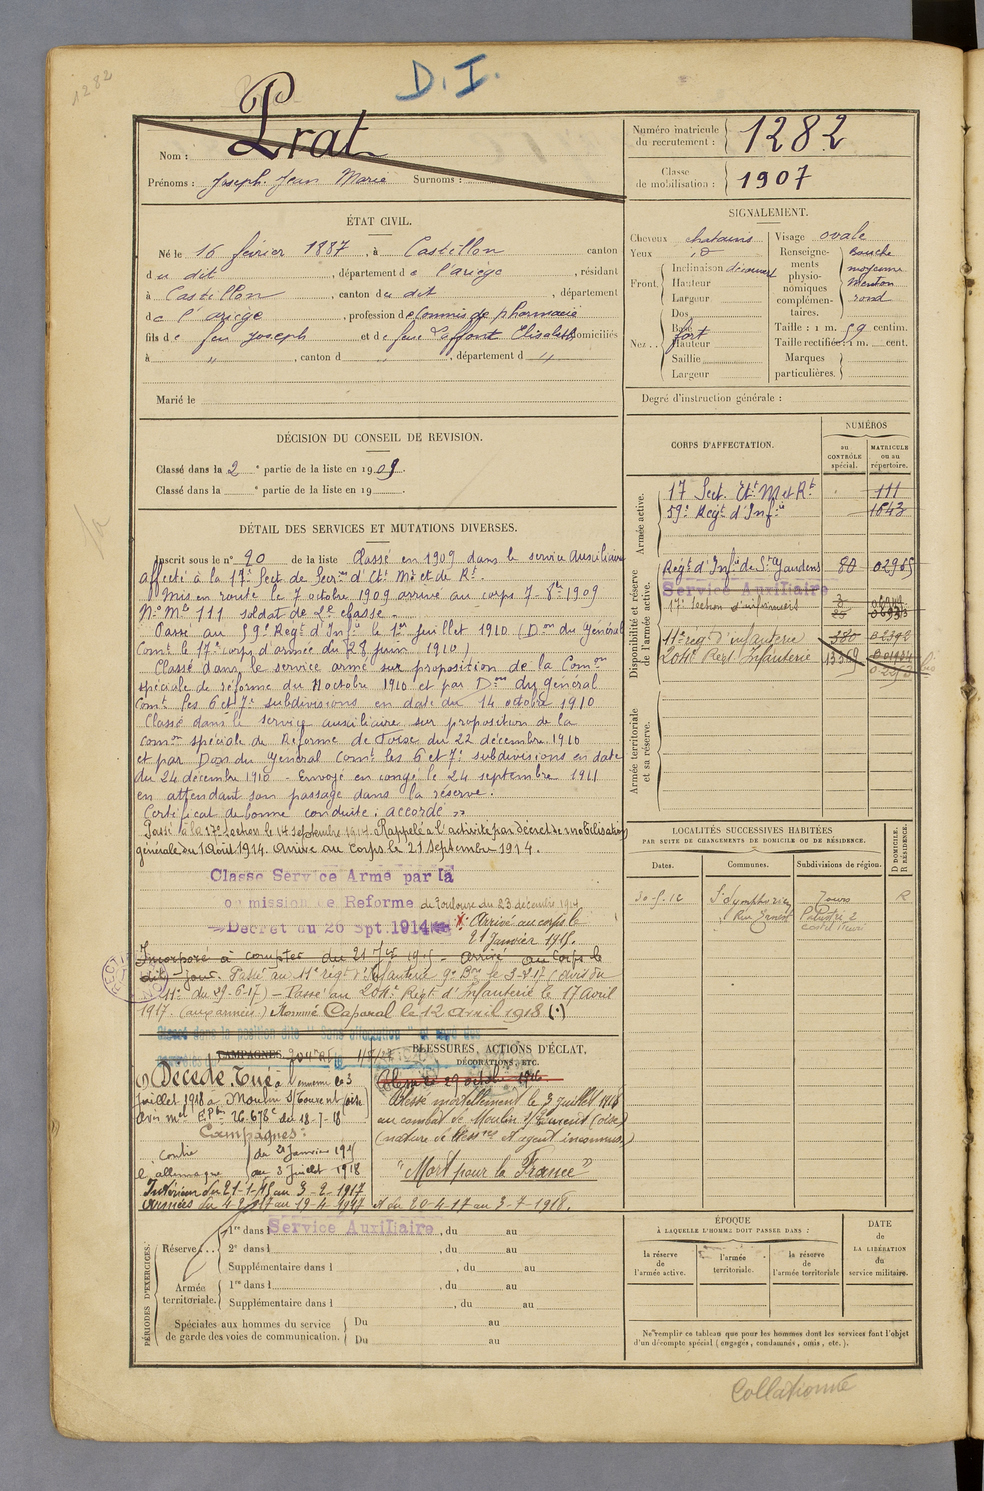 1282
D. I.
Nom : Prat
Prénoms : Joseph Jean Marie Surnoms :
Numéro matricule du recrutement : 1282
Classe de mobilisation : 1907
ÉTAT CIVIL.
Né le 16 février 1887, à Castillon canton
du dit, département de l'ariège, résidant
à Castillon, canton du dit, département
de l'ariège, profession de Commis de pharmacie
fils de feu Joseph et de feue Laffont Elisabeth domiciliés
à ", canton d , département d "
Marié le
SIGNALEMENT.
Cheveux chatains
Yeux id
Front. Inclinaison découvert
Hauteur
Largeur
Nez .. Dos
Base fort
Hauteur
Saillie
Largeur
Visage ovale
Renseignements physionomiques complémentaires. Bouche moyenne Menton rond
Taille : 1 m. 59 centim.
Taille rectifiée: 1 m. cent.
Marques particulières.
Degré d'instruction générale :
DÉCISION DU CONSEIL DE REVISION.
Classé dans la 2 e partie de la liste en 1909.
Classé dans la e partie de la liste en 19 .
CORPS D'AFFECTATION.
NUMÉROS
au CONTRÔLE spécial.
MATRICULE ou au répertoire.
Armée active.
17 Sect. Et. M et Rt 111
59e Régt d'Infie 1643
Disponibilité et réserve de l'armée active.
Regt d'Infie de St Gaudens 80
Service Auxiliaire
17e Section d'infirmiers
11e reg d'infanterie 380
204e Regt Infanterie 13369
Armée territoriale et sa réserve.
DÉTAIL DES SERVICES ET MUTATIONS DIVERSES.
Inscrit sous le n° 90 de la liste Classé en 1909 dans le service Auxiliaire
Affecté à la 17e Sect. de Secres d'Et. Mr et de Rt.
Mis en route le 7 octobre 1909 arrivé au corps 7-8bre 1909
N° Mle 111 soldat de 2e classe
Passé au 59e Regt d'Infie le 1er juillet 1910 (Don du Général
Comt le 17e corps d'armée du 28 juin 1910)
Classé dans le service armé sur proposition de la Comon
spéciale de réforme du 11 octobre 1910 et par Don du général
Comt les 6 et 7e subdivisions en date du 14 octobre 1910
Classé dans le service auxiliaire sur proposition de la
Comon spéciale de Réforme de Foix du 22 décembre 1910
et par Don du Général Comt les 6 et 7e subdivisions en date
du 24 décembre 1910 - Envoyé en congé le 24 septembre 1911
en attendant son passage dans la réserve.
Certificat de bonne conduite: accordé "
Passé à la 17e section le 14 septembre 1914. Rappelé à l'activité par décret de mobilisation
générale du 1 Août 1914. Arrivé au corps le 21 septembre 1914.
Classe Service Arme par la
ommission de Reforme de Toulouse du 23 décembre 1914.
Decret du 26 Spt. 1914 Arrivé au corps le
21 janvier 1915.
Incorporé à compter du 21 Jer 1915 - arrivé au Corps le
dit jour. Passé au 11e régt d'Infanterie 9e Bon le
11e du 29-6-17) - Passé au 204e Regt d'Infanterie le 17 Avril
1917. (aux armées) Nommé Caporal le 12 Avril 1918 (.)
Classé dans la position dite "Sans affectation"
LOCALITÉS SUCCESSIVES HABITÉES
PAR SUITE DE CHANGEMENTS DE DOMICILE OU DE RÉSIDENCE.
Dates.
Communes.
Subdivisions de région.
D DOMICILE. R RÉSIDENCE.
30-5-12 St Symphorien Tours R
CAMPAGNES.
(.) Décédé. Tué à l'ennemi le 3
juillet 1918 à Moulin s/Touvent (oise)
avis mel 26.678c du 18-7-18
Campagnes:
contre du 21 Janvier 1915
l'allemagne au 3 juillet 1918
Intérieur du 21-1-15 au 3-2-1917
Armées du 4-2-1917 au 19-4-1917 et du 20-4-17 au 3-7-1918.
BLESSURES, ACTIONS D'ÉCLAT, DÉCORATIONS, ETC.
Blessé le 29 octobre 1916
Blessé mortellement le 3 juillet 1918
au combat de Moulin s/Touvent (oise)
(nature de blessre et agent inconnus.)
"Mort pour la France"
PÉRIODES D'EXERCICES.
Réserve... 1re dans l Service Auxiliaire, du au
2e dans l , du au
Supplémentaire dans l , du au
Armée territoriale. 1re dans l , du au
Supplémentaire dans l , du au
Spéciales aux hommes du service de garde des voies de communication. Du au
Du au
ÉPOQUE
À LAQUELLE L'HOMME DOIT PASSER DANS :
la réserve de l'armée active.
l'armée territoriale.
la réserve de l'armée territoriale
DATE de LA LIBÉRATION du service militaire.
Ne remplir ce tableau que pour les hommes dont les services font l'objet
d'un décompte spécial (engagés, condamnés, omis, etc.).
Collationné